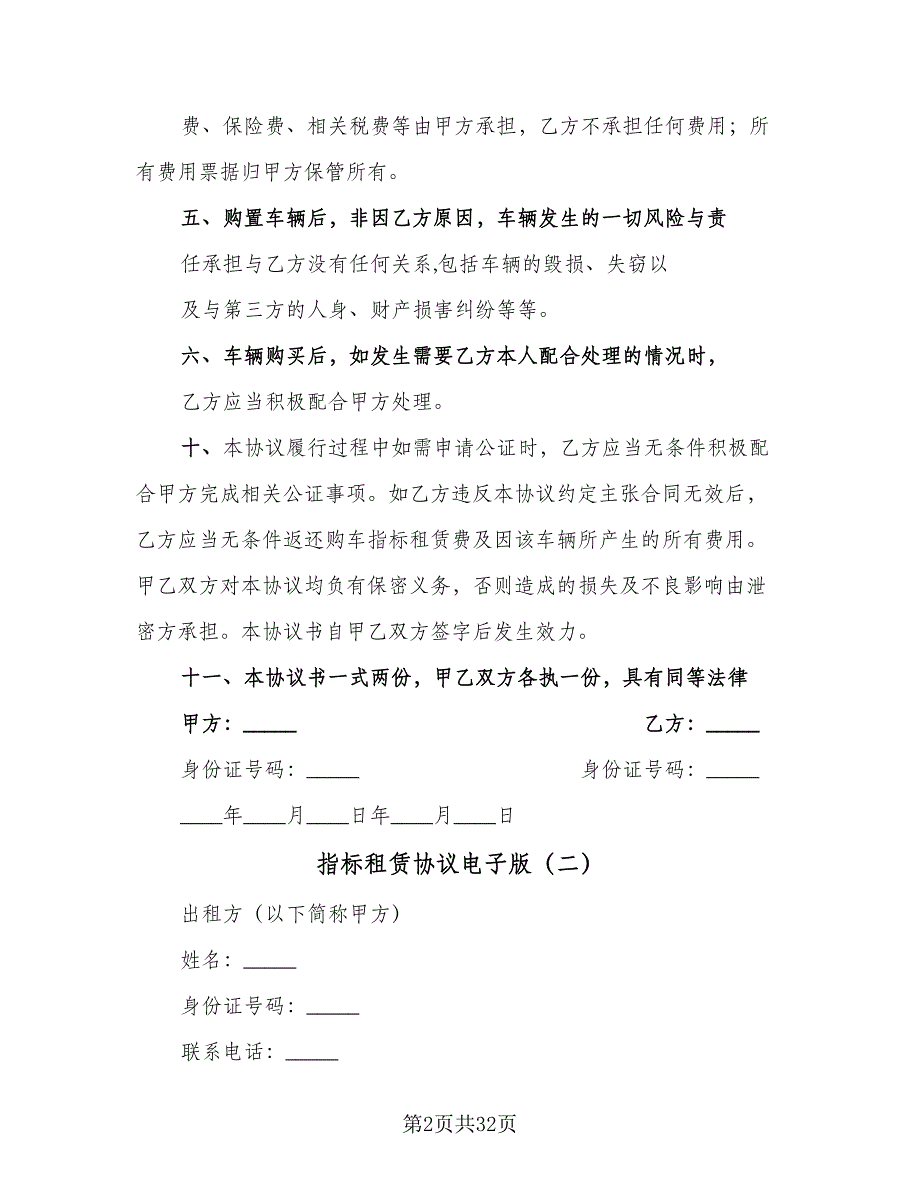 费、保险费、相关税费等由甲方承担，乙方不承担任何费用；所
有费用票据归甲方保管所有。
五、购置车辆后，非因乙方原因，车辆发生的一切风险与责
任承担与乙方没有任何关系,包括车辆的毁损、失窃以
及与第三方的人身、财产损害纠纷等等。
六、车辆购买后，如发生需要乙方本人配合处理的情况时，
乙方应当积极配合甲方处理。
十、本协议履行过程中如需申请公证时，乙方应当无条件积极配
合甲方完成相关公证事项。如乙方违反本协议约定主张合同无效后，
乙方应当无条件返还购车指标租赁费及因该车辆所产生的所有费用。
甲乙双方对本协议均负有保密义务，否则造成的损失及不良影响由泄
密方承担。本协议书自甲乙双方签字后发生效力。
十一、本协议书一式两份，甲乙双方各执一份，具有同等法律
甲方：_____ 乙方：_____
身份证号码：_____ 身份证号码：_____
____年____月____日年____月____日
指标租赁协议电子版（二）
出租方（以下简称甲方）
姓名：_____
身份证号码：_____
联系电话：_____
第2页共32页